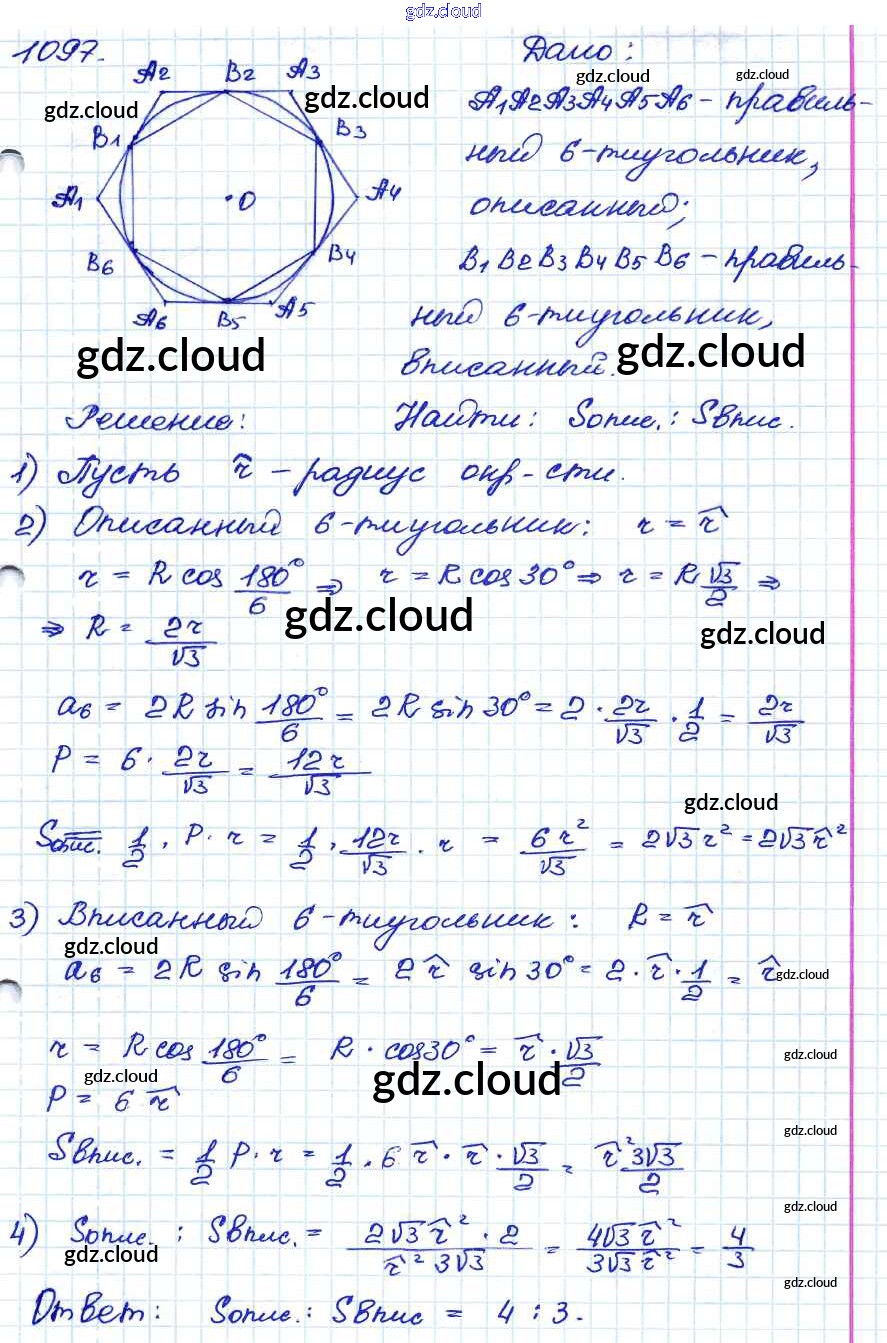 gdz.cloud
1097.
Дано:
A2 B2 A3
gdz.cloud gdz.cloud
gdz.cloud gdz.cloud
A1A2A3A4A5A6 – правиль-
B1 B3
ный 6-тиугольник,
A1 O A4
описанный;
B6 B4
B1B2B3B4B5B6 – правиль-
A6 B5 A5
ный 6-тиугольник,
gdz.cloud gdz.cloud
вписанный.
Решение: Найти: Sопис. : Sвпис.
1) Пусть r̂ – радиус окр-сти.
2) Описанный 6-тиугольник: r = r̂
r = R cos 180°/6 ⇒ r = R cos 30° ⇒ r = R √3/2 ⇒
gdz.cloud gdz.cloud
⇒ R = 2r/√3
a6 = 2R sin 180°/6 = 2R sin 30° = 2 · 2r/√3 · 1/2 = 2r/√3
P = 6 · 2r/√3 = 12r/√3
gdz.cloud
Sопис. = 1/2 · P · r = 1/2 · 12r/√3 · r = 6r²/√3 = 2√3 r² = 2√3 r̂²
3) Вписанный 6-тиугольник: R = r̂
gdz.cloud
a6 = 2R sin 180°/6 = 2 r̂ sin 30° = 2 · r̂ · 1/2 = r̂
gdz.cloud
r = R cos 180°/6 = R · cos 30° = r̂ · √3/2
gdz.cloud
gdz.cloud gdz.cloud
P = 6 r̂
gdz.cloud
Sвпис. = 1/2 P · r = 1/2 · 6 r̂ · r̂ · √3/2 = r̂² 3√3/2
gdz.cloud
4) Sопис. : Sвпис. = 2√3 r̂² · 2/r̂² 3√3 = 4√3 r̂²/3√3 r̂² = 4/3
gdz.cloud gdz.cloud
gdz.cloud
Ответ: Sопис. : Sвпис = 4 : 3.